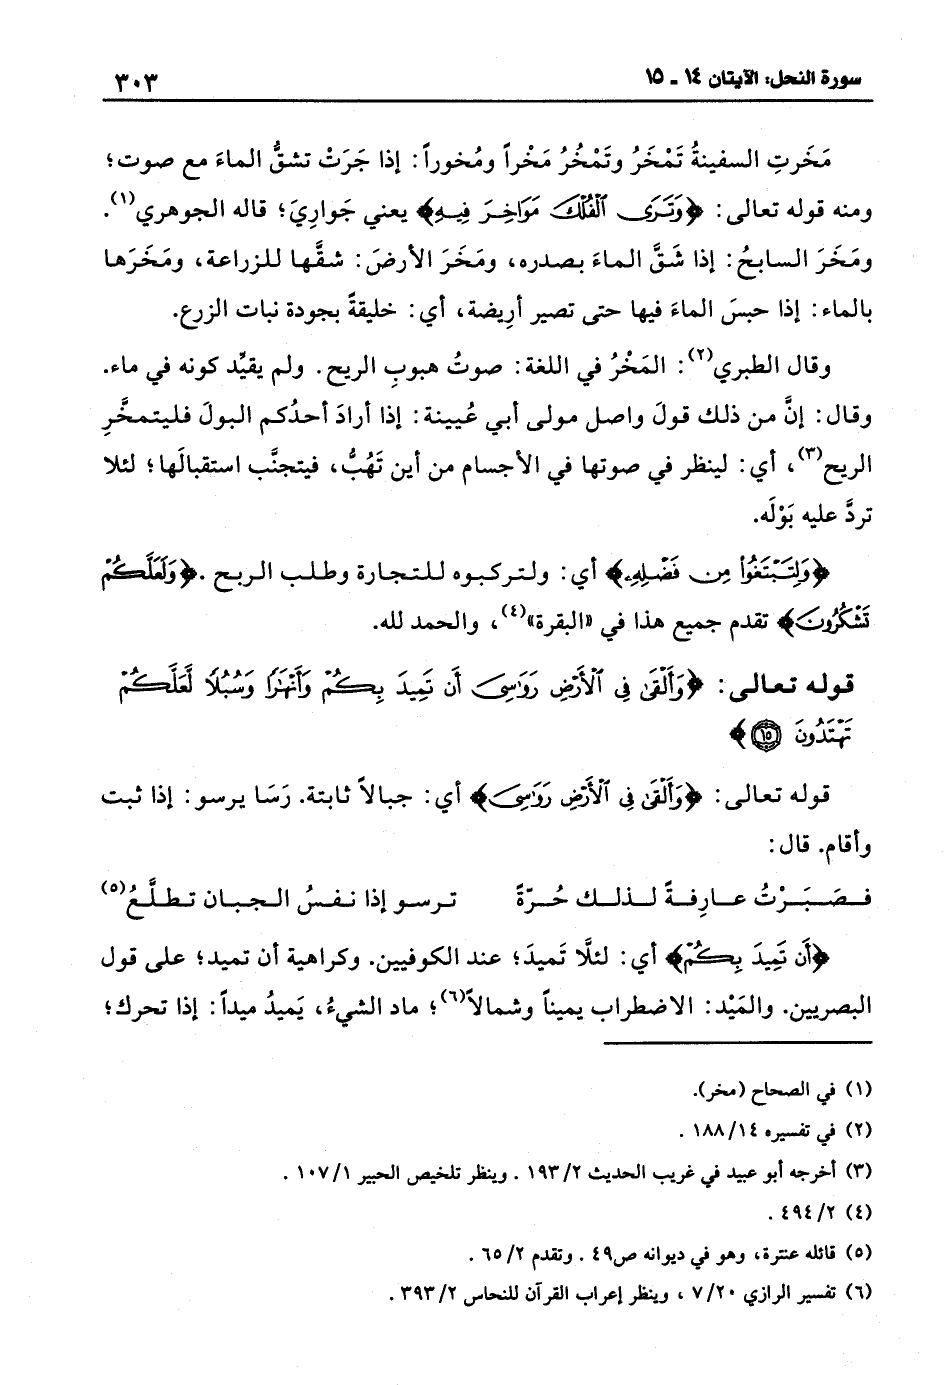 سورة النحل: الآيتان ١٤ - ١٥
٣٠٣
مَخَرتِ السفينةُ تَمْخَرُ وتَمْخُرُ مَخْراً ومُخوراً: إذا جَرَتْ تشقُّ الماءَ مع صوت؛
ومنه قوله تعالى: ﴿وَتَرَى الْفُلْكَ مَوَاخِرَ فِيهِ﴾ يعني جَوارِيَ؛ قاله الجوهري(١).
ومَخَرَ السابحُ: إذا شَقَّ الماءَ بصدره، ومَخَرَ الأرضَ: شقَّها للزراعة، ومَخَرَها
بالماء: إذا حبسَ الماءَ فيها حتى تصير أرِيضة، أي: خليقةً بجودة نبات الزرع.
وقال الطبري(٢): المَخْرُ في اللغة: صوتُ هبوبِ الريح. ولم يقيِّد كونه في ماء.
وقال: إنَّ من ذلك قولَ واصل مولى أبي عُيينة: إذا أرادَ أحدُكم البولَ فليتمخَّرِ
الريح(٣)، أي: لينظر في صوتها في الأجسام من أين تَهُبُّ، فيتجنَّب استقبالَها؛ لئلا
تردَّ عليه بَوْلَه.
﴿وَلِتَبْتَغُوا مِن فَضْلِهِ﴾ أي: ولتركبوه للتجارة وطلب الربح. ﴿وَلَعَلَّكُمْ
تَشْكُرُونَ﴾ تقدم جميع هذا في «البقرة»(٤)، والحمد لله.
قوله تعالى: ﴿وَأَلْقَىٰ فِي الْأَرْضِ رَوَاسِيَ أَن تَمِيدَ بِكُمْ وَأَنْهَارًا وَسُبُلًا لَّعَلَّكُمْ
تَهْتَدُونَ ۝١٥﴾
قوله تعالى: ﴿وَأَلْقَىٰ فِي الْأَرْضِ رَوَاسِيَ﴾ أي: جبالاً ثابتة. رَسَا يرسو: إذا ثبت
وأقام. قال:
فـصَـبَـرْتُ عـارِفـةً لـذلـك حُـرّةً ترسو إذا نفسُ الجبان تطلَّعُ(٥)
﴿أَن تَمِيدَ بِكُمْ﴾ أي: لئلَّا تَميدَ؛ عند الكوفيين. وكراهية أن تميد؛ على قول
البصريين. والمَيْد: الاضطراب يميناً وشمالاً(٦)؛ ماد الشيءُ، يَميدُ ميداً: إذا تحرك؛
(١) في الصحاح (مخر).
(٢) في تفسيره ١٤/ ١٨٨ .
(٣) أخرجه أبو عبيد في غريب الحديث ٢/ ١٩٣ . وينظر تلخيص الحبير ١/ ١٠٧ .
(٤) ٢/ ٤٩٤ .
(٥) قائله عنترة، وهو في ديوانه ص٤٩ . وتقدم ٢/ ٦٥ .
(٦) تفسير الرازي ٢٠/ ٧ ، وينظر إعراب القرآن للنحاس ٢/ ٣٩٣ .